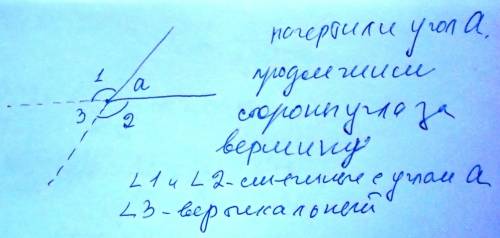 начертили угол a.
1
a
продолжили
3
2
стороны угла за
вершину
∠1 и ∠2-смежные с углом a
∠3-вертикальный